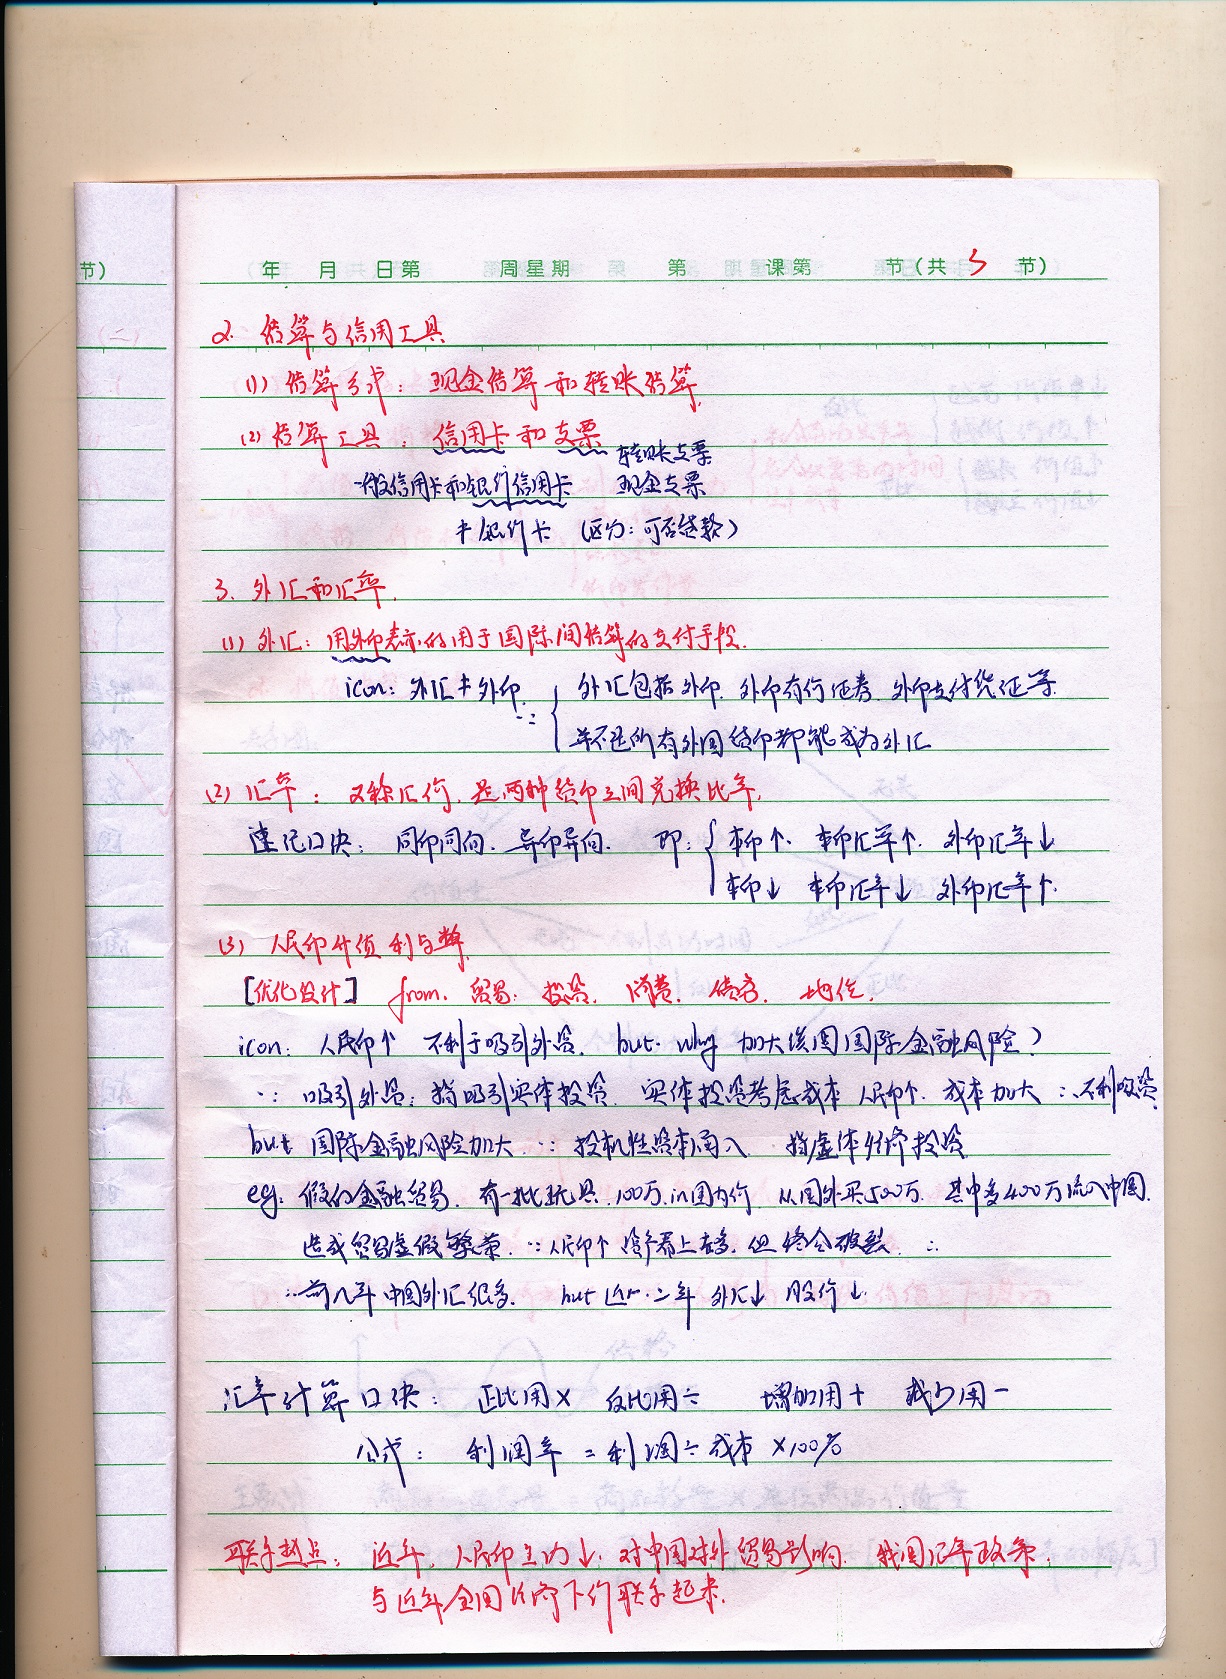 节)
年 月 日第 周星期 第 课第 节(共 3 节)
2. 结算与信用工具
(1) 结算方式: 现金结算和转账结算.
(2) 结算工具: 信用卡和支票
转账支票
一般信用卡和银行信用卡 现金支票
≠银行卡 (区分: 可否贷款)
3. 外汇和汇率.
(1) 外汇: 用外币表示的用于国际间结算的支付手段.
icon: 外汇≠外币. ∵ { 外汇包括外币. 外币有价证券. 外币支付凭证等
并不是所有外国货币都能成为外汇
(2) 汇率: 又称汇价, 是两种货币之间兑换比率.
速记口决: 同币同向. 异币异向. 即: { 本币↑. 本币汇率↑. 外币汇率↓
本币↓ 本币汇率↓ 外币汇率↑.
(3) 人民币升值利与弊.
[优化设计] from. 贸易. 投资. 消费. 债务. 地位.
icon: 人民币↑ 不利于吸引外资. but. why 加大我国国际金融风险?
∵ 吸引外资: 指吸引实体投资. 实体投资考虑成本 人民币↑. 成本加大 ∴不利吸资.
but 国际金融风险加大. ∵ 投机性资本涌入. 指虚体经济投资
eg. 假的金融贸易. 有一批玩具. 100万.in国内价 从国外买500万. 其中多400万流入中国.
造成贸易虚假繁荣. ∵人民币↑ 资产看上去多. 但终会破裂. ∴
∴前几年中国外汇很多. but 近一.二年 外汇↓ 股价↓.
汇率计算口决: 正比用× 反比用÷ 增加用+ 减少用-
公式: 利润率 = 利润÷成本 ×100%
联系热点: 近年. 人民币 ↓. 对中国对外贸易影响. 我国汇率政策.
与近年全国经济下行联系起来.